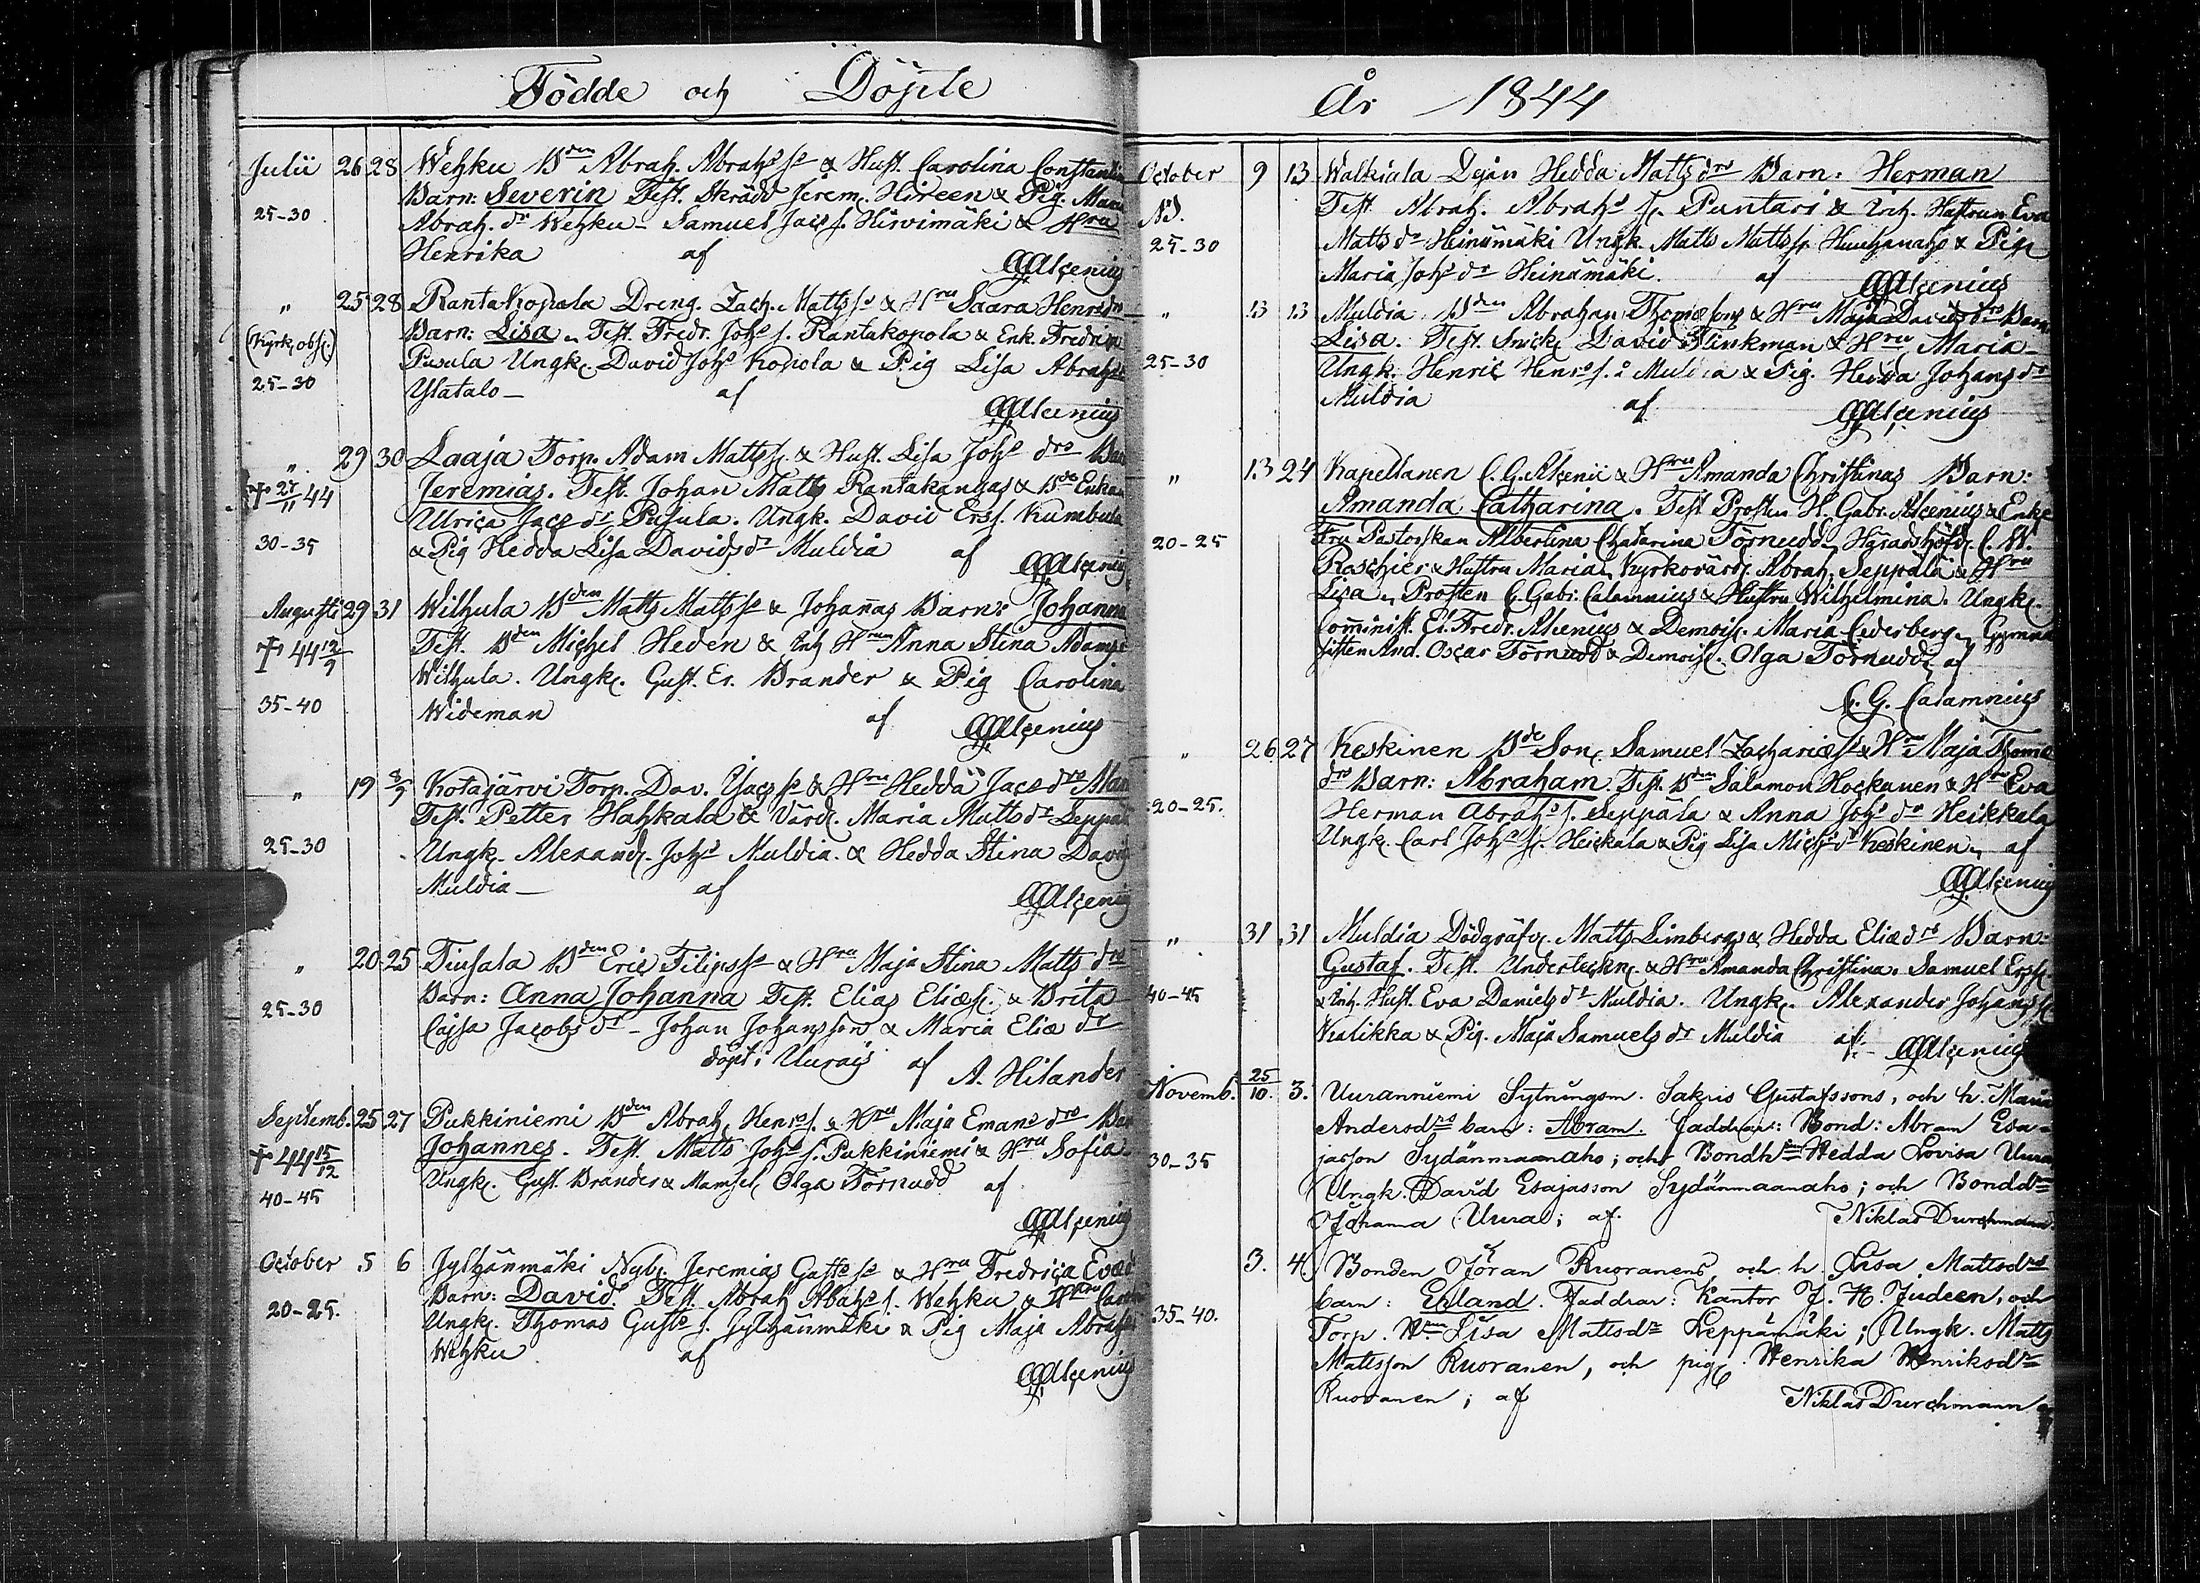 Födde och Döpte
Julii 26 28 Wehku Bden Abrah. Abrahs so & Hust. Carolina
25-30 Barn: Severin Test. Skrädd Jerem. Hireen & Pig.
Abrah. dr Wehku - Samuel Jacs s. Hirvimäki & Hru
Henrika af Alcenius
" 25 28 Rantakopola Dreng. Zach. Matts so & Hru Saara
(Kyrk. obs.) Barn: Lisa. Test. Fredr. Johs s. Rantakopola & Enk.
25-30 Pusula Ungk. David Johs Kopola & Pig Lisa
Ylatalo - af Alcenius
" 29 30 Laaja Torp. Adam Matts s. & Hust. Lisa Johs drs
† 27/11 44 Jeremias. Test. Johan Matts Rantakangas & Bde Enkan
Ulrica Jacs dr Pusula. Ungk. David Ers s. Kumbula
30-35 & Pig Hedda Lisa Davids dr Muldia af Alcenius
Augusti 29 31 Wilhula Bden Matts Matts so & Johañas Barn: Johanna
† 44 12/9 Test. Bden Michel Heden & Inh Hrun Anna Stina
Wilhula. Ungk. Gust. Er. Brander & Pig Carolina
35-40 Wideman af Alcenius
" 19 8/9 Kotajärvi Torp. Dav. Jacs so & Hru Hedda Jacs drs
Test. Petter Hahkala & Värd. Maria Matts dr
25-30 Ungk. Alexand. Johs Muldia. & Hedda Stina
Muldia - af Alcenius
" 20 25 Tiusala Bden Eric Filips so & Hru Maja Stina Matts drs
25-30 Barn: Anna Johanna Test. Elias Eliæ s. & Brita
Cajsa Jacobs dr - Johan Johansson & Maria Eliæ dr
döpt i Uurais af A. Hilander
Septemb. 25 27 Pukkiniemi Bden Abrah. Henrs s. & Hru Maja Emans drs
† 44 15/12 Johannes. Test. Matts Johs s. Pukkiniemi & Hru Sofia.
40-45 Ungk. Gust. Brander & Mamsel. Olga Törnudd af
Alcenius
October 5 6 Jylhänmäki Nyb. Jeremias Gusts so & Hru Fredrica
20-25. Barn: David. Test. Abrah Abahs s. Wehku & Hru
Ungk. Thomas Gusts s. Jylhänmäki & Pig Maja
Wehku af Alcenius
År 1844
October 9 13 Walkiala Dejan Hedda Matts drs Barn: Herman
Test Abrah. Abrahs s. Puntari & Inh. Hustrun Eva
25-30 Matts dr Heinämäki Ungk. Matts Matts s. & Pig
Maria Johs dr Heinämäki. af Alcenius
" 13 13 Muldia Bden Abraham Thomæ & Hru Maja Davids drs Barn
25-30 Lisa. Test. Snick. David Flinkman & Hru Maria -
Ungk. Henric Henrs s. Muldia & Pig. Hedda Johans dr
Muldia af Alcenius
" 13 24 Kapellanen C. G. Alcenii & Hru Amanda Christinas Barn:
Amanda Catharina. Test Prosten H. Gabr. Alcenius & Enke
20-25 Fru Pastorskan Albertina Chatarina Törnudd, Häradshöfd. C. W.
Roschier & Hustru Maria, Kyrkovärd. Abrah. Seppälä & Hru
Lisa, Prosten C. Gabr. Calamnius & Hustru Wilhelmina. Ungk.
Com̄inist. El. Fredr. Alcenius & Demois. Maria Cederberg,
And. Oscar Törnudd & Demois. Olga Törnudd, af
C. G. Calamnius
" 26 27 Keskinen Bde Son. Samuel Zachariæ s. & Hru Maja Thomæ
drs Barn: Abraham. Test. Bden Salamon Hockanen & Hru Eva
20-25. Herman Abrahs s. Seppälä & Anna Johs dr Heikkala
Ungk. Carl Johs s. Heickala & Pig Lisa Michs dr Keskinen, af
Alcenius
" 31 31 Muldia Dödgräfv. Matts Limbergs & Hedda Eliæ drs Barn:
Gustaf. Test. Underteckn. & Hru Amanda Christina. Samuel Ers s.
40-45 & Inh. Hust. Eva Daniels dr Muldia. Ungk. Alexander Johans s.
Kalikka & Pig. Maja Samuels dr Muldia af Alcenius
Novemb. 25/10. 3. Uuranniemi Sytningsm. Sakris Gustafssons, och h. Maria
Andersdrs barn: Abram. Faddrar: Bond: Abram Esa-
30-35 jasson Sydänmaanaho; och Bondh Hedda Lovisa Uura
Ungk. David Esajasson Sydänmaanaho; och Bondd
Johanna Uura; af. Niklas Durchmann.
3. 4. Bonden Jöran Ruoranens och h. Lisa Mattsdrs
barn: Erland. Faddrar: Kantor J. H. Judeen, och
35-40. Torp. Hun Lisa Mattsdr Leppämäki; Ungk. Matts
Mattsson Ruoranen, och pig. Henrika Henriksdr
Ruoranen; af Niklas Durchmann